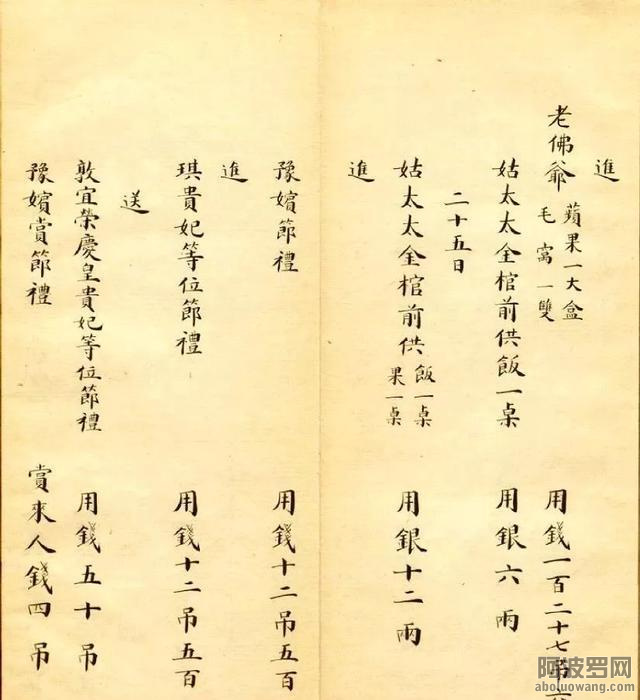 進
老佛爺 蘋果一大盒 毛窩一雙 用錢一百二十七吊
姑太太全棺前供飯一桌 用銀六兩
二十五日
姑太太全棺前供飯一桌 果一桌 用銀十二兩
進
豫嬪節禮 用錢十二吊五百
進
琪貴妃等位節禮 用錢十二吊五百
送
敦宜榮慶皇貴妃等位節禮 用錢五十吊
豫嬪賞節禮 賞來人錢四吊
阿波罗网
aboluowang.com